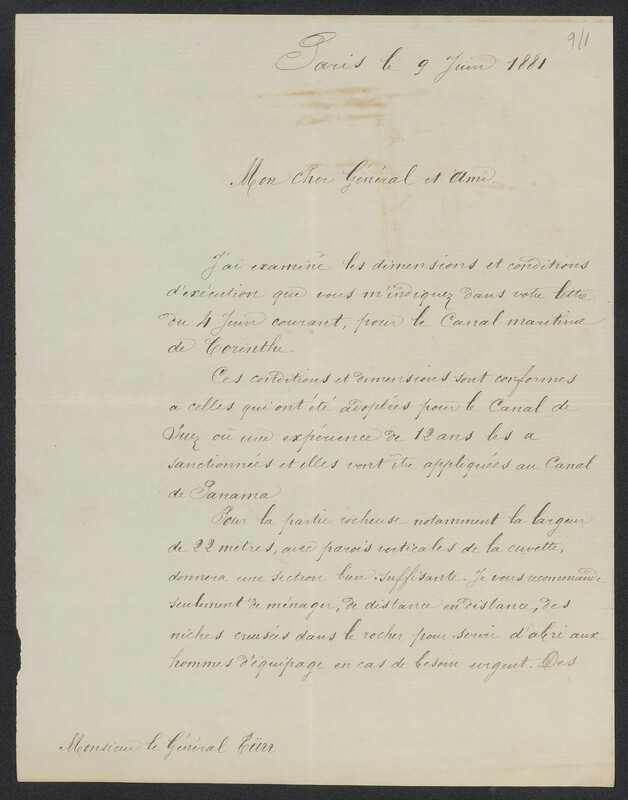 9/1
Paris le 9 Juin 1881
Mon cher Général et Ami.
J'ai examiné les dimensions et conditions
d'exécution que vous m'indiquez dans votre lettre
du 4 Juin courant, pour le Canal maritime
de Corinthe.
Ces conditions et dimensions sont conformes
a celles qui ont été adoptées pour le Canal de
Suez où une expérience de 12 ans les a
sanctionnées et elles vont être appliquées au Canal
de Panama
Pour la partie rocheuse notamment la largeur
de 22 metres, avec parois verticales de la cuvette,
donnera une section bien suffisante. Je vous recommande
seulement de ménager, de distance en distance, des
niches creusées dans le rocher pour servir d'abri aux
hommes d'équipage en cas de besoin urgent. Des
Monsieur le Général Türr